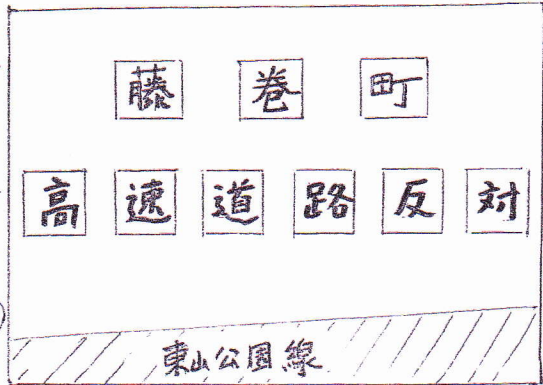 藤巻町
高速道路反対
東山公園線